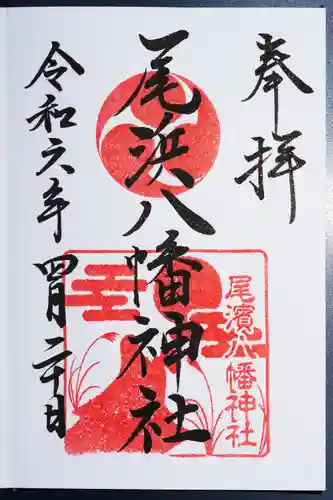 奉拝
尾浜八幡神社
尾濱八幡神社
令和六年四月二十日